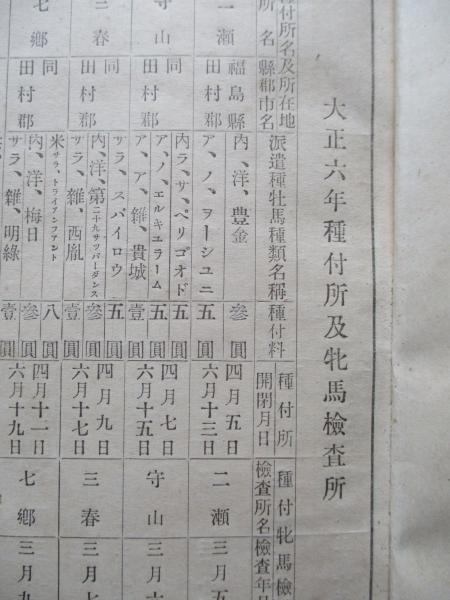 大正六年種付所及牝馬檢査所
種付所名及所在地
所名
縣郡市名
派遣種牡馬種類名稱
種付料
種付所
開閉月日
種付牝馬檢
檢査所名
檢査年月
二瀬
福島縣
田村郡
內、洋、豊金
參圓
ア、ノ、ヲージユニ
五圓
四月五日
六月十三日
二瀬
三月五
守山
同
田村郡
內ラ、サ、ペリゴオド
五圓
ア、ノ、エルキユラーム
五圓
ア、ア、雜、貴城
壹圓
四月七日
六月十五日
守山
三月六
三春
同
田村郡
サラ、スパイロウ
五圓
內、洋、第二十九サツバーダンス
參圓
サラ、雜、西胤
壹圓
四月九日
六月十七日
三春
三月七
七鄉
同
田村郡
米サラ、トライアンフアント
八圓
內、洋、梅日
參圓
サラ、雜、明綠
壹圓
四月十一日
六月十九日
七鄉
三月九